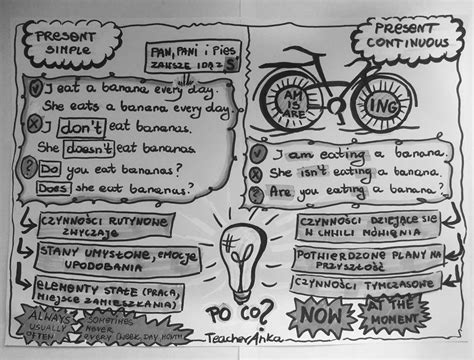 PRESENT
SIMPLE
PAN, PANI i PIES
ZAWSZE IDĄ Z S
V I eat a banana every day.
She eats a banana every day.
X I don't eat bananas.
She doesn't eat bananas.
? Do you eat bananas?
Does she eat bananas?
CZYNNOŚCI RUTYNOWE
ZWYCZAJE
STANY UMYSŁOWE, EMOCJE
UPODOBANIA
ELEMENTY STAŁE (PRACA,
MIEJSCE ZAMIESZKANIA)
ALWAYS
USUALLY
OFTEN
SOMETIMES
NEVER
EVERY (WEEK, DAY, MONTH
PO CO?
TeacherAnka
PRESENT
CONTINUOUS
AM
IS
ARE
ING
V I am eating a banana.
X She isn't eating a banana.
? Are you eating a banana?
CZYNNOŚCI DZIEJĄCE SIĘ
W CHWILI MÓWIENIA
POTWIERDZONE PLANY NA
PRZYSZŁOŚĆ
CZYNNOŚCI TYMCZASOWE
NOW
AT THE
MOMENT